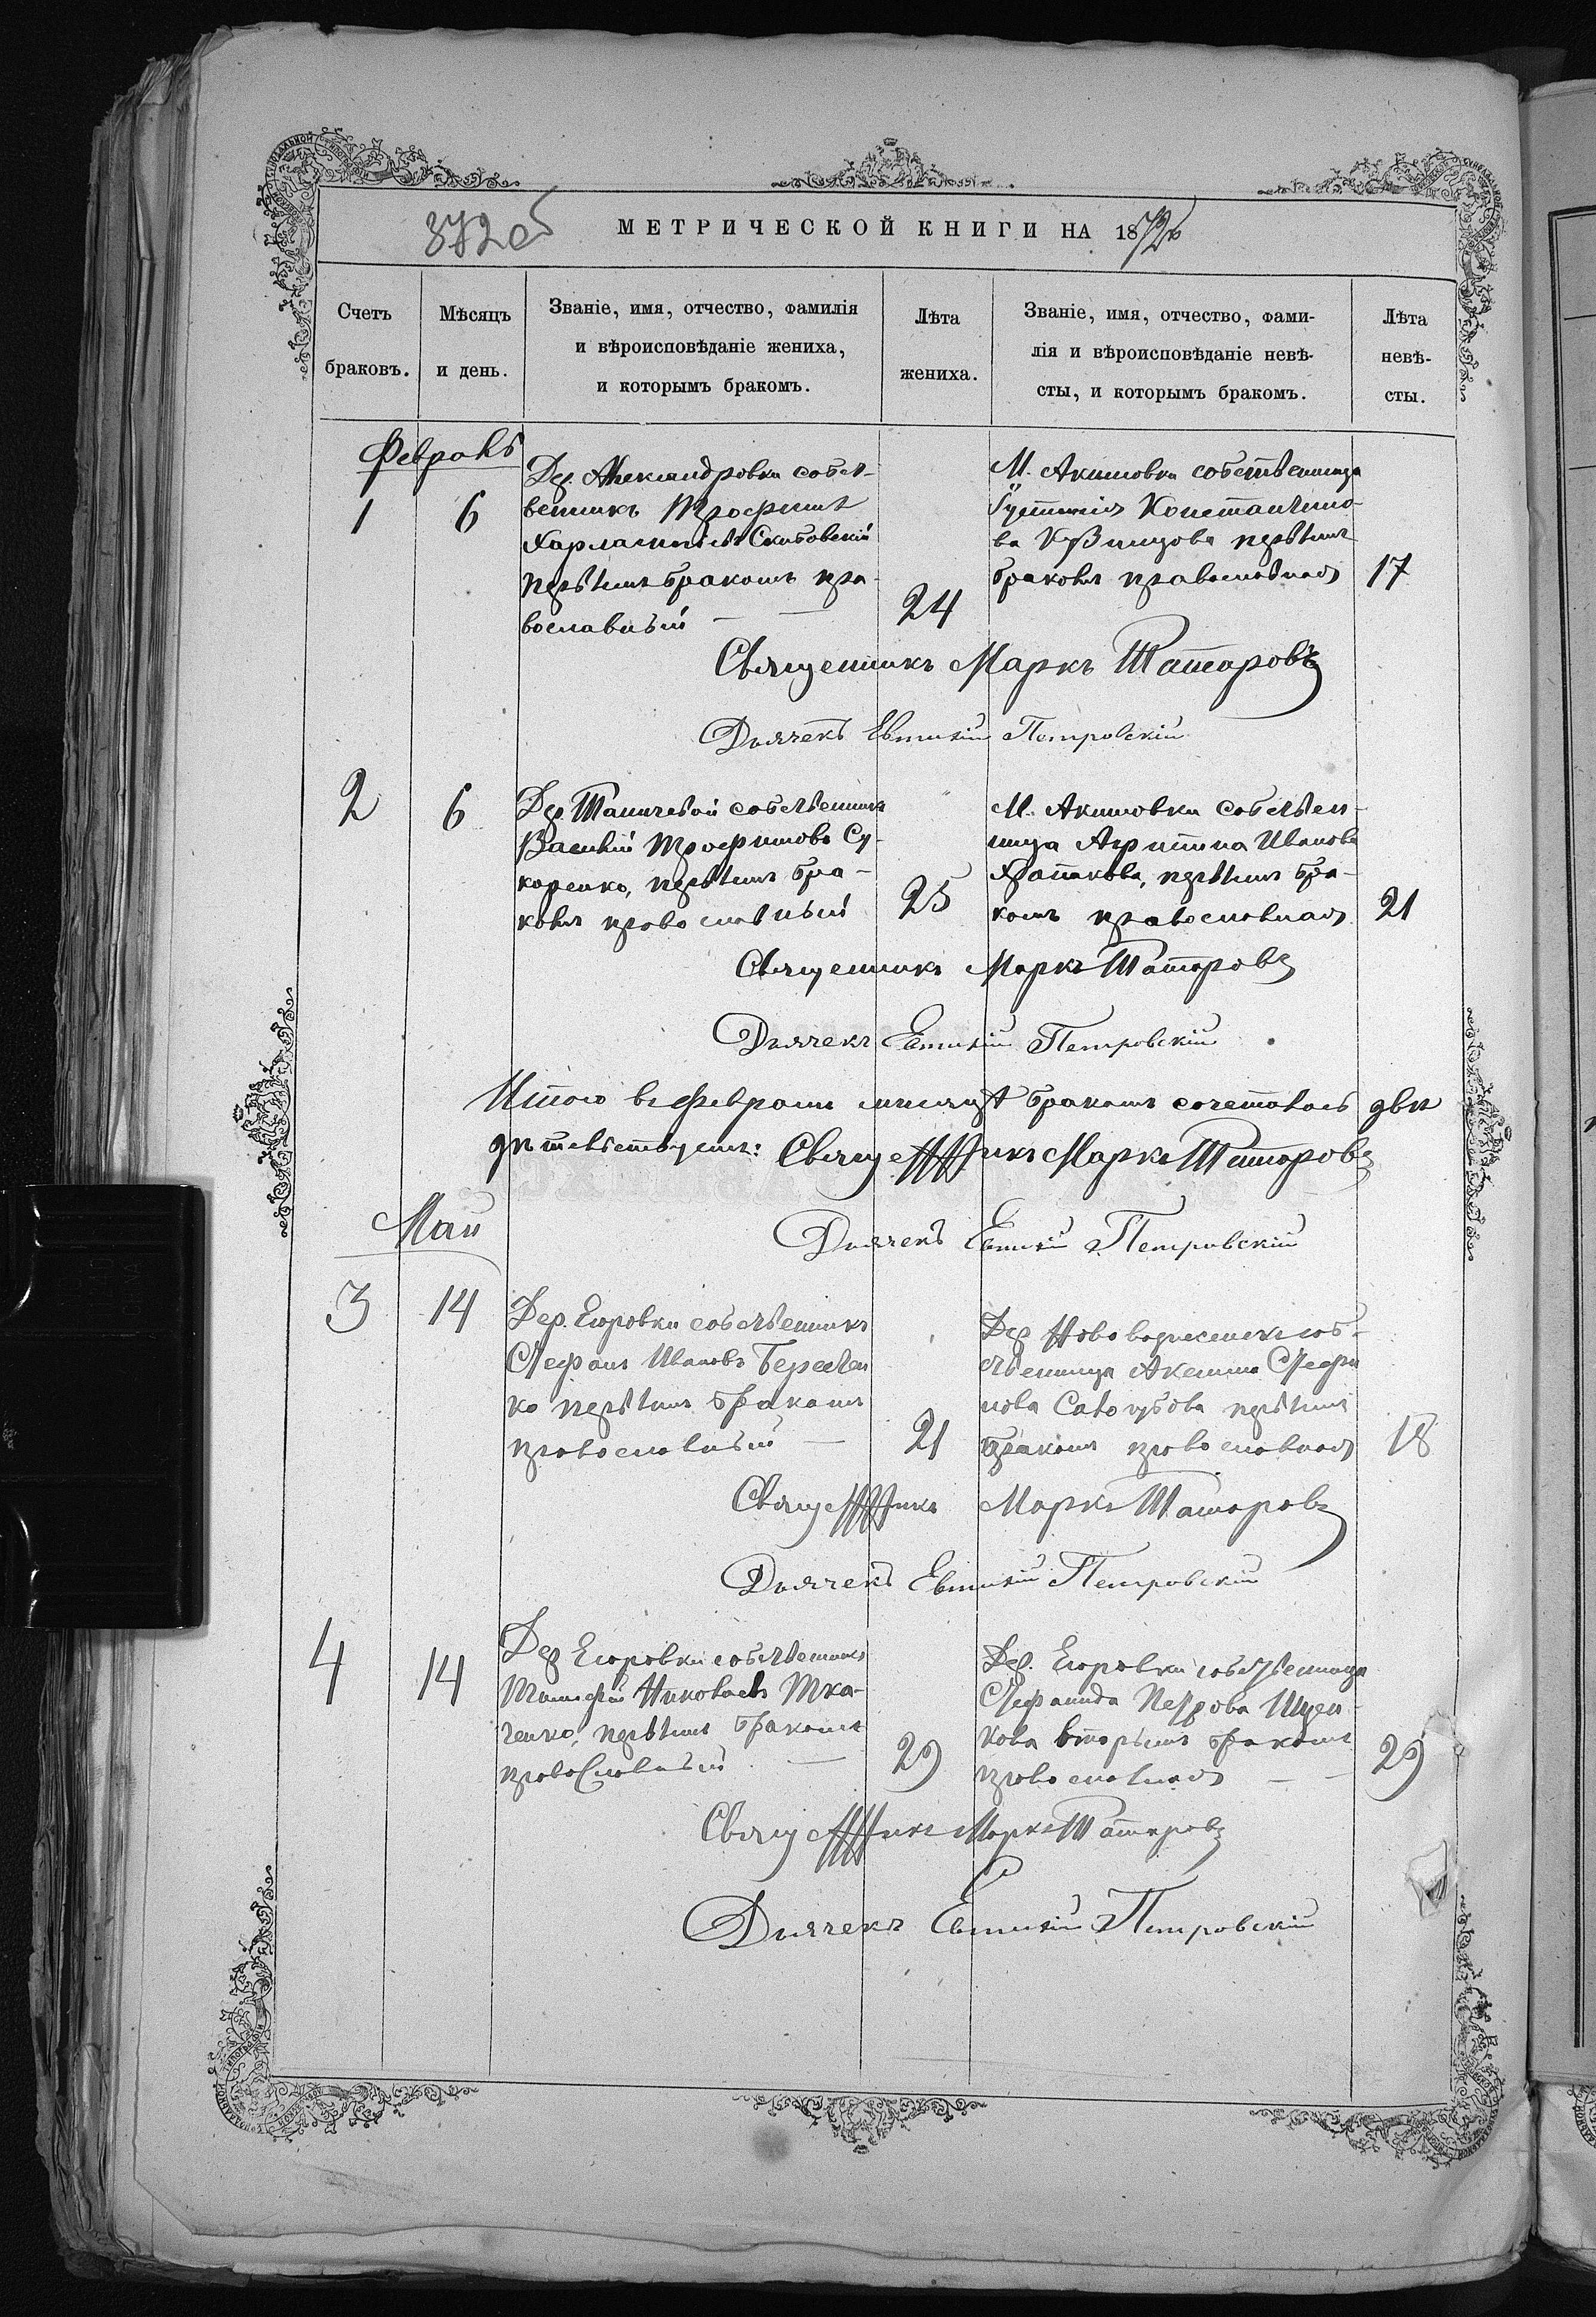 872 об
МЕТРИЧЕСКОЙ КНИГИ НА 1872
Счетъ браковъ.
Мѣсяцъ и день.
Званіе, имя, отчество, фамилія
и вѣроисповѣданіе жениха,
и которымъ бракомъ.
Лѣта жениха.
Званіе, имя, отчество, фами-
лія и вѣроисповѣданіе невѣ-
сты, и которымъ бракомъ.
Лѣта невѣ-
сты.
Февраль
1 6
Дер. Александровки собст-
венникъ Трофимъ
Харлампіевъ Скибовскій
первымъ бракомъ пра-
вославный
24
М. Акимовки собственница
Іустинія Константино-
ва Кузнецова первымъ
бракомъ православная
17
Священникъ Маркъ Татаровъ
Дьячекъ Евтихій Петровскій
2 6
Дер. собственникъ
Василій Трофимовъ Су-
коренко, первымъ бра-
комъ православный
25
М. Акимовки собствен-
ница Агрипина Иванова
первымъ бра-
комъ православная
21
Священникъ Маркъ Татаровъ
Дьячекъ Евтихій Петровскій
Итого въ Февралѣ мѣсяцѣ бракомъ сочеталось двѣ
Священникъ Маркъ Татаровъ
Дьячекъ Евтихій Петровскій
Май
3 14
Дер. Егоровки собственникъ
Стефанъ Ивановъ
ко первымъ бракомъ
православный
21
Дер. соб-
ственница Ксенія Стефа
нова первымъ
бракомъ православная
18
Священникъ Маркъ Татаровъ
Дьячекъ Евтихій Петровскій
4 14
Дер. Егоровки собственникъ
Тимофей Николаевъ Тка-
ченко, первымъ бракомъ
православный
29
Дер. Егоровки собственница
Стефанида Петрова Ищен-
кова вторымъ бракомъ
православная
29
Священникъ Маркъ Татаровъ
Дьячекъ Евтихій Петровскій